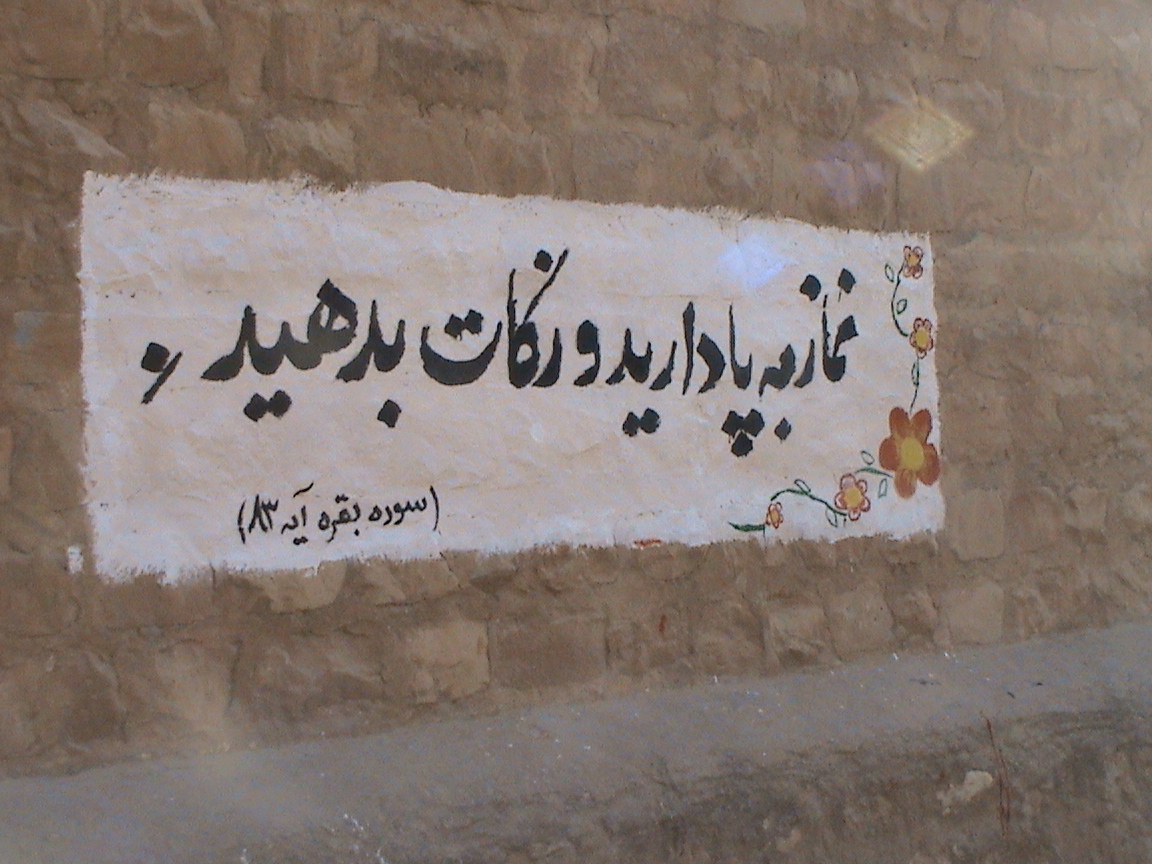 نماز به پا دارید و زکات بدهید.
(سوره بقره آیه ۸۳)